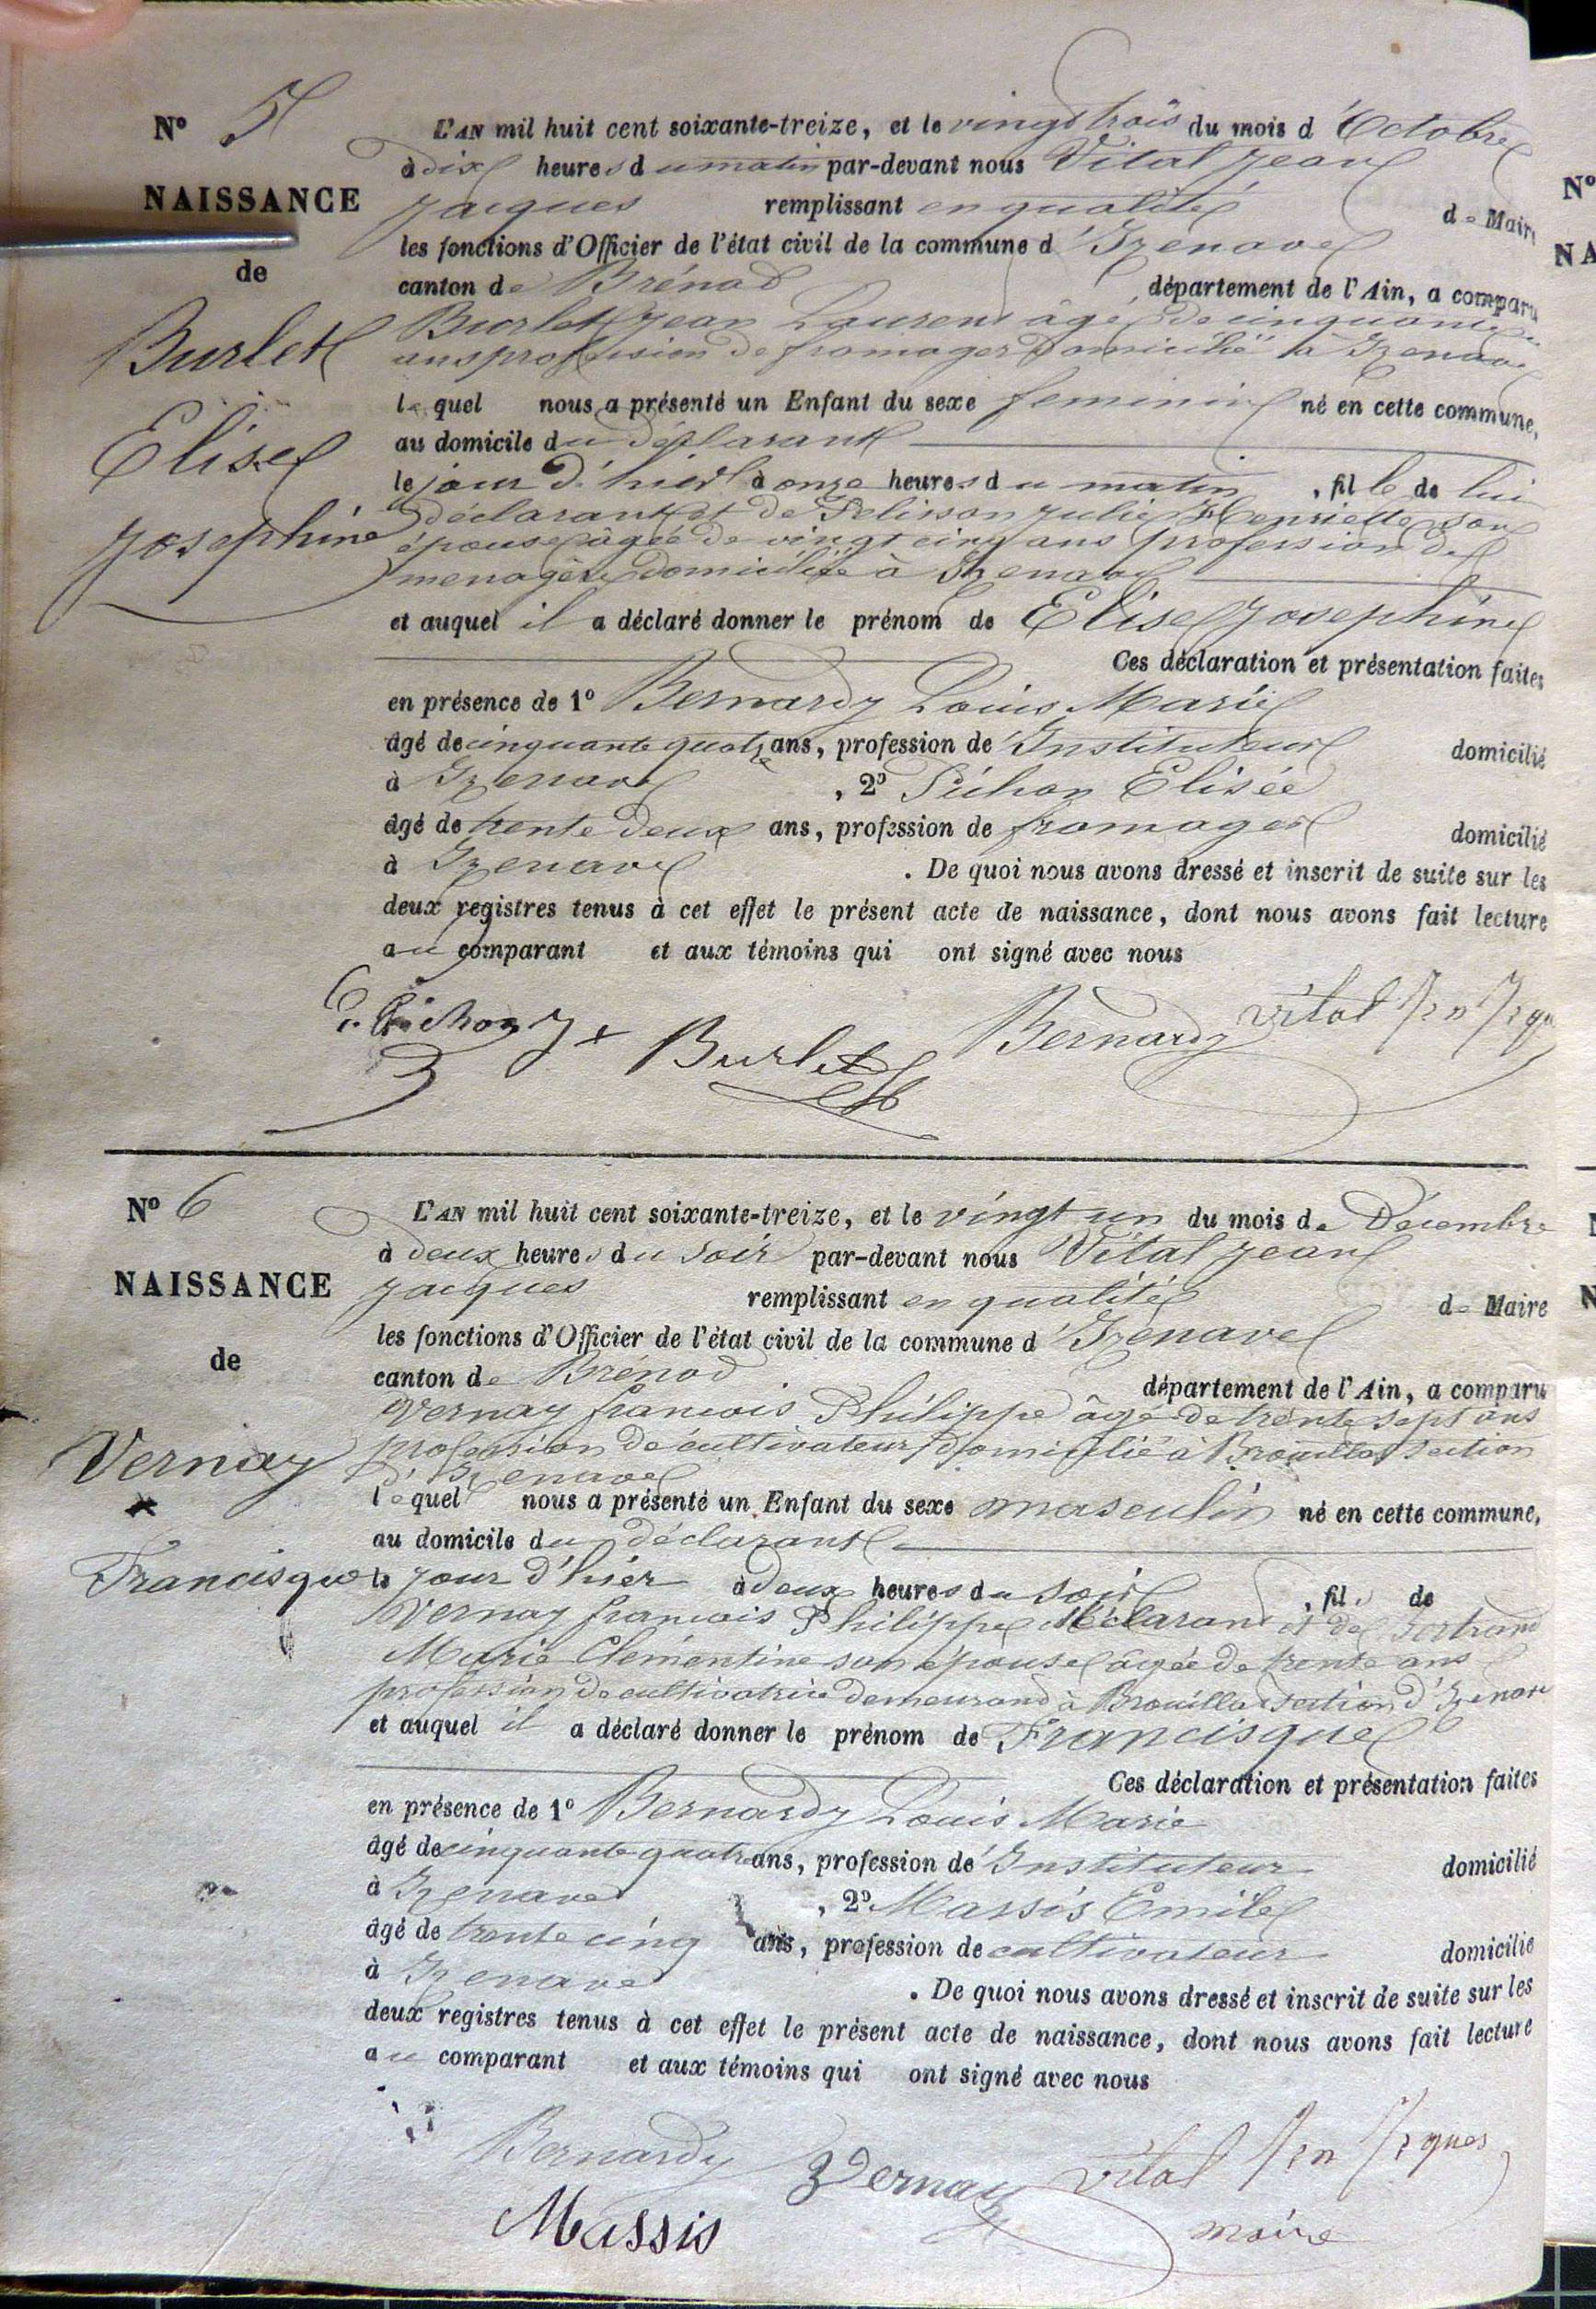 N° 5
NAISSANCE
de
Burlet
Elise
Josephine
L'AN mil huit cent soixante-treize, et le vingt trois du mois d'Octobre
à dix heures du matin par-devant nous Vital Jean
Jacques remplissant en qualité de Maire
les fonctions d'Officier de l'état civil de la commune d'Izenave
canton de Brénod département de l'Ain, a comparu
Burlet Jean Laurent âgé de cinquante
ans profession de fromager domicilié à Izenave
lequel nous a présenté un Enfant du sexe feminin né en cette commune,
au domicile du déclarant
le jour d'hier à onze heures du matin, fille de lui
déclarant et de Pelisson Julie Henriette son
épouse âgée de vingt cinq ans profession de
menagère domiciliée à Izenave
et auquel il a déclaré donner le prénom de Elise Josephine
Ces déclaration et présentation faites
en présence de 1° Bernardy Louis Marie
âgé de cinquante quatre ans, profession de Instituteur domicilié
à Izenave, 2° Pichon Elisée
âgé de trente deux ans, profession de fromager domicilié
à Izenave. De quoi nous avons dressé et inscrit de suite sur les
deux registres tenus à cet effet le présent acte de naissance, dont nous avons fait lecture
au comparant et aux témoins qui ont signé avec nous
E. Pichon Burlet Bernardy Vital Jn Jqu
N° 6
NAISSANCE
de
Vernay
Francisque
L'AN mil huit cent soixante-treize, et le vingt un du mois de Décembre
à deux heures du soir par-devant nous Vital Jean
Jacques remplissant en qualité de Maire
les fonctions d'Officier de l'état civil de la commune d'Izenave
canton de Brénod département de l'Ain, a comparu
Vernay francois Philippe âgé de trente sept ans
profession de cultivateur domicilié à Brouillat section
d'Izenave
lequel nous a présenté un Enfant du sexe masculin né en cette commune,
au domicile du déclarant
le jour d'hier à deux heures du soir, fils de
Vernay francois Philippe déclarant et de
Marie Clémentine son épouse âgée de trente ans
profession de cultivatrice demeurand à section d'Izenave
et auquel il a déclaré donner le prénom de Francisque
Ces déclaration et présentation faites
en présence de 1° Bernardy Louis Marie
âgé de cinquante quatre ans, profession de Instituteur domicilié
à Izenave, 2° Massis Emile
âgé de trente cinq ans, profession de cultivateur domicilié
à Izenave. De quoi nous avons dressé et inscrit de suite sur les
deux registres tenus à cet effet le présent acte de naissance, dont nous avons fait lecture
au comparant et aux témoins qui ont signé avec nous
Bernardy Vernay Vital Jn Jques
Massis maire